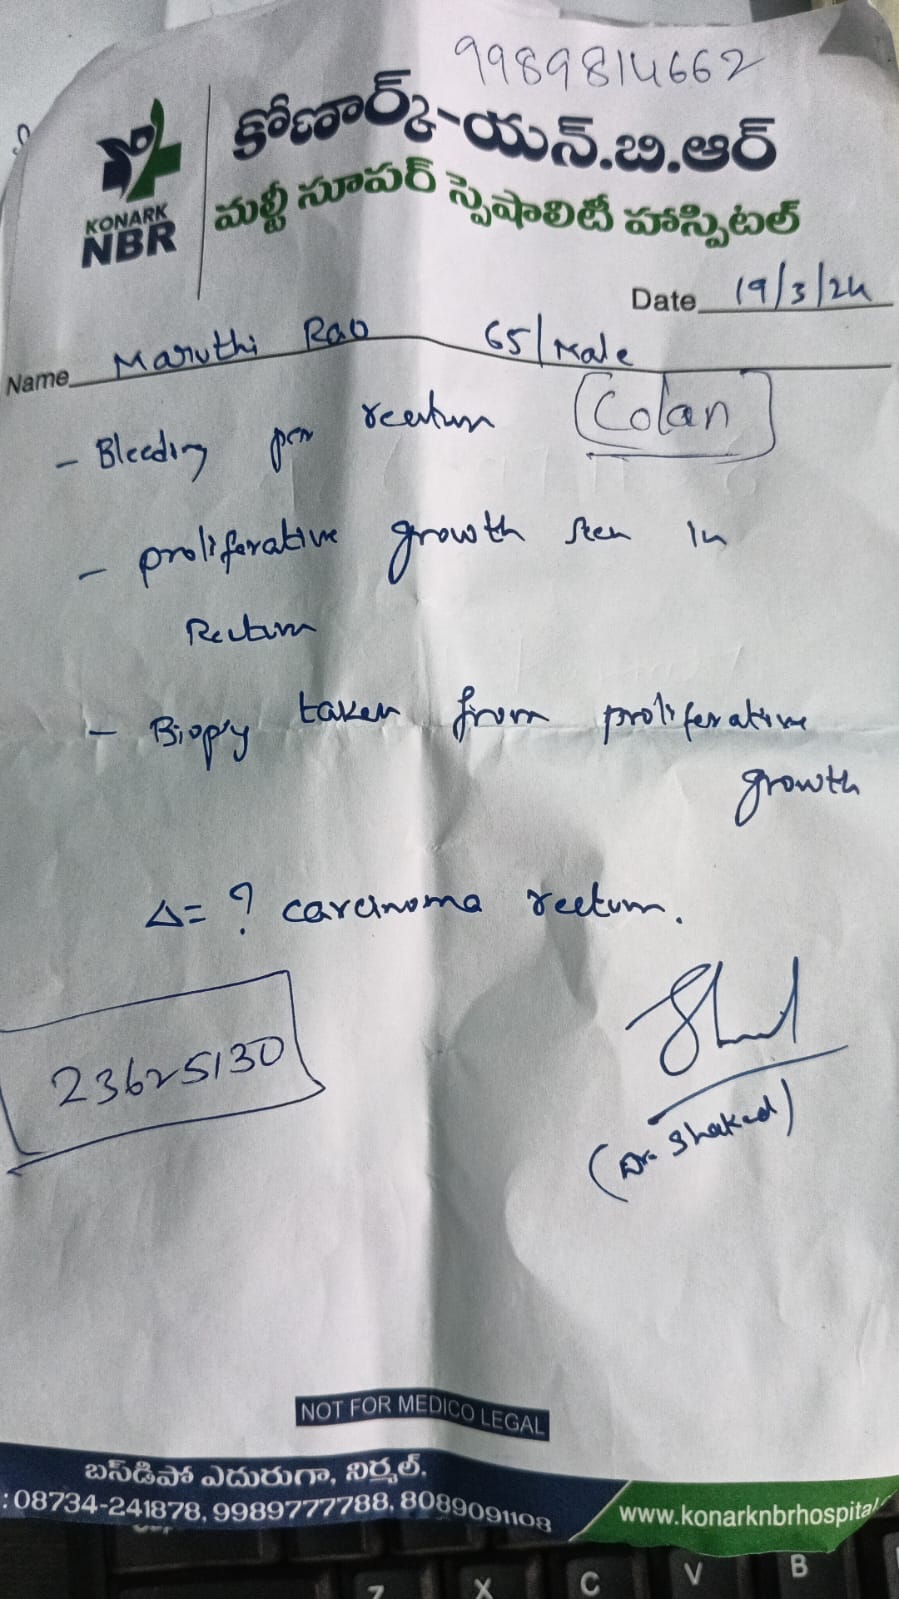 9989814662
KONARK
NBR
కోణార్క్-యన్.బి.ఆర్
మల్టీ సూపర్ స్పెషాలిటీ హాస్పిటల్
Date 19/3/24
Name Maruthi Rao 65/Male
- Bleeding per rectum Colan
- proliferative growth seen in
Rectum
- Biopsy taken from proliferative
growth
Δ= ? carcinoma rectum.
23625130
(Dr. Shaked)
NOT FOR MEDICO LEGAL
బస్‌డిపో ఎదురుగా, నిర్మల్.
: 08734-241878, 9989777788, 8089091108
www.konarknbrhospital
Z X C V B